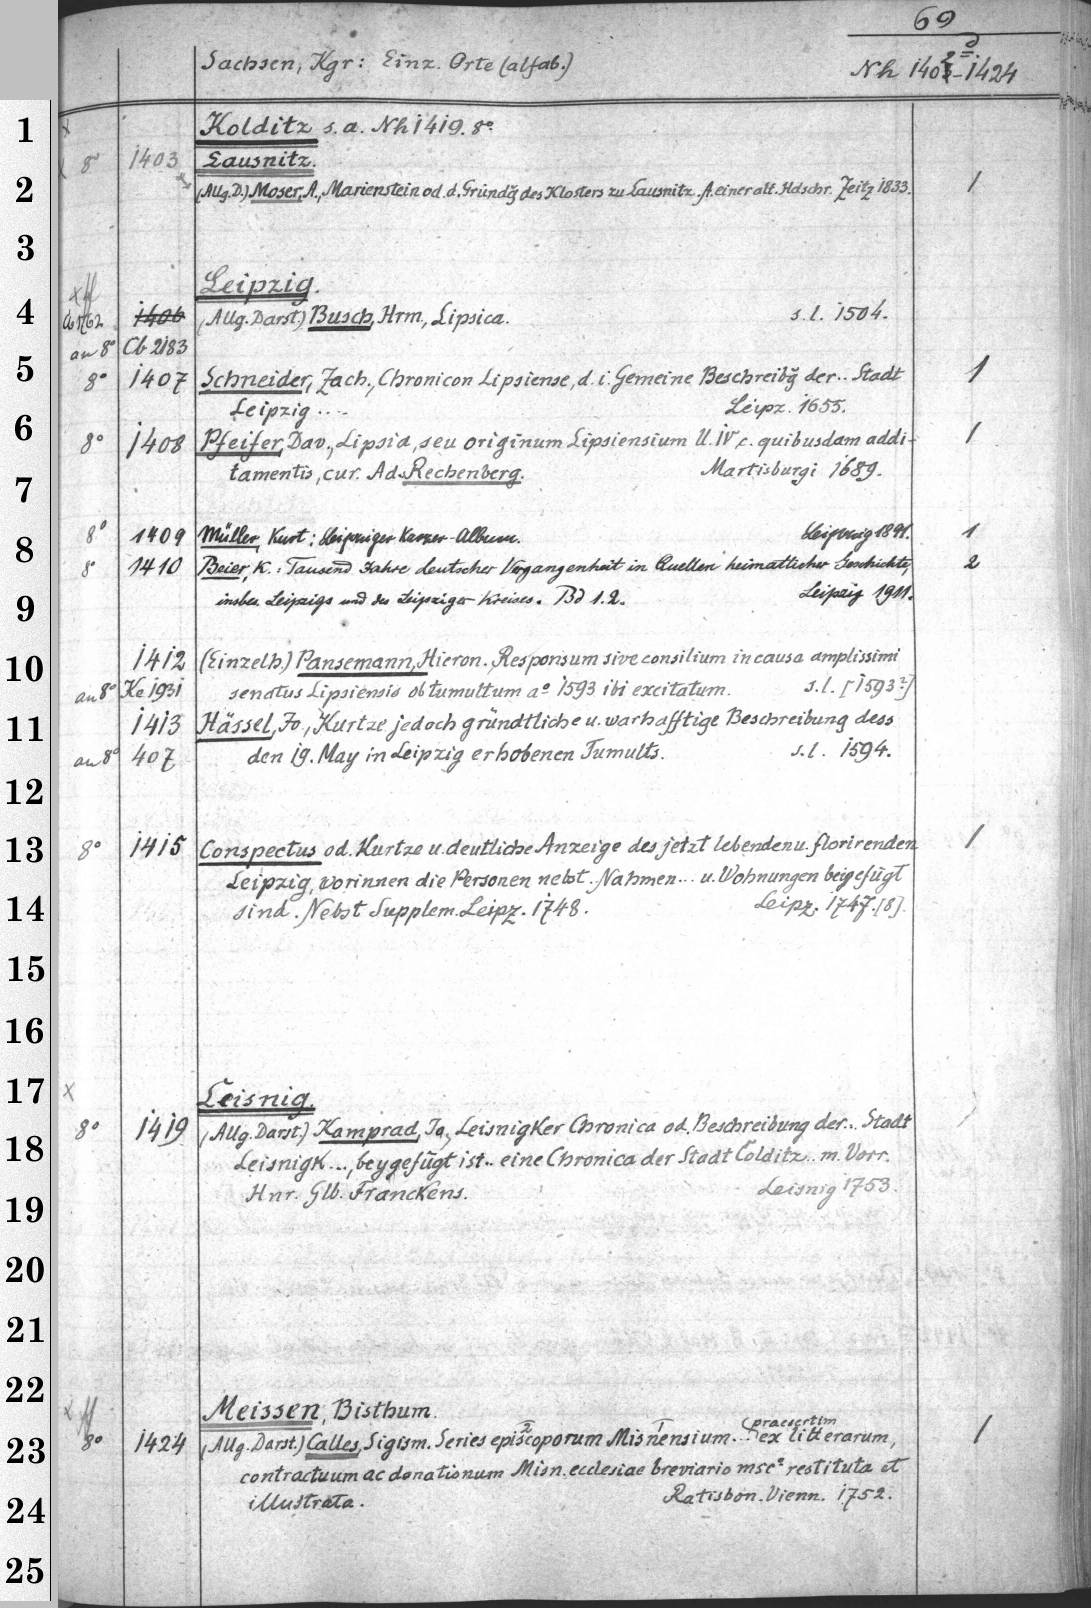 69
Sachsen, Kgr: Einz. Orte (alfab.)
Nh 1402d-1424
1 x Kolditz s. a. Nh 1419. 8°.
8° 1403 Lausnitz.
2 (Allg. D.) Moser, A., Marienstein od. d. Gründg des Klosters zu Lausnitz. A. einer alt. Hdschr. Zeitz 1833. 1
3
Leipzig.
4 1406 (Allg. Darst.) Busch, Hrm., Lipsica. s. l. 1504.
an 8° Cb 2183
5 8° 1407 Schneider, Zach., Chronicon Lipsiense, d. i. Gemeine Beschreibg der .. Stadt 1
Leipzig .... Leipz. 1655.
6 8° 1408 Pfeifer, Dav., Lipsia, seu originum Lipsiensium ll. IV, c. quibusdam addi- 1
tamentis, cur. Ad. Rechenberg. Martisburgi 1689.
7
8° 1409 Müller, Kurt: Leipziger Karzer-Album. Leipzig 1891. 1
8 8° 1410 Beier, K.: Tausend Jahre deutscher Vergangenheit in Quellen heimatlicher Geschichte, 2
9 insbes. Leipzigs und des Leipziger Kreises. Bd 1.2. Leipzig 1911.
10 1412 (Einzelh.) Pansemann, Hieron. Responsum sive consilium in causa amplissimi
an 8° Ke 1931 senatus Lipsiensis ob tumultum a° 1593 ibi excitatum. s. l. [1593?]
11 1413 Hässel, Jo., Kurtze jedoch gründtliche u. warhafftige Beschreibung dess
an 8° 407 den 19. May in Leipzig erhobenen Tumults. s. l. 1594.
12
13 8° 1415 Conspectus od. Kurtze u. deutliche Anzeige des jetzt lebenden u. florirenden 1
Leipzig, worinnen die Personen nebst Nahmen ... u. Wohnungen beigefügt
14 sind. Nebst Supplem. Leipz. 1748. Leipz. 1747. [8].
15
16
17 x Leisnig.
8° 1419 (Allg. Darst.) Kamprad, Jo., Leisnigker Chronica od. Beschreibung der .. Stadt
18 Leisnigk ..., beygefügt ist .. eine Chronica der Stadt Colditz .. m. Vorr.
19 Hnr. Glb. Franckens. Leisnig 1753.
20
21
22 x Meissen, Bisthum.
23 8° 1424 (Allg. Darst.) Calles, Sigism. Series episcoporum Misnensium. .. praesertim ex litterarum, 1
contractuum ac donationum Misn. ecclesiae breviario msc° restituta et
24 illustrata. Ratisbon. Vienn. 1752.
25